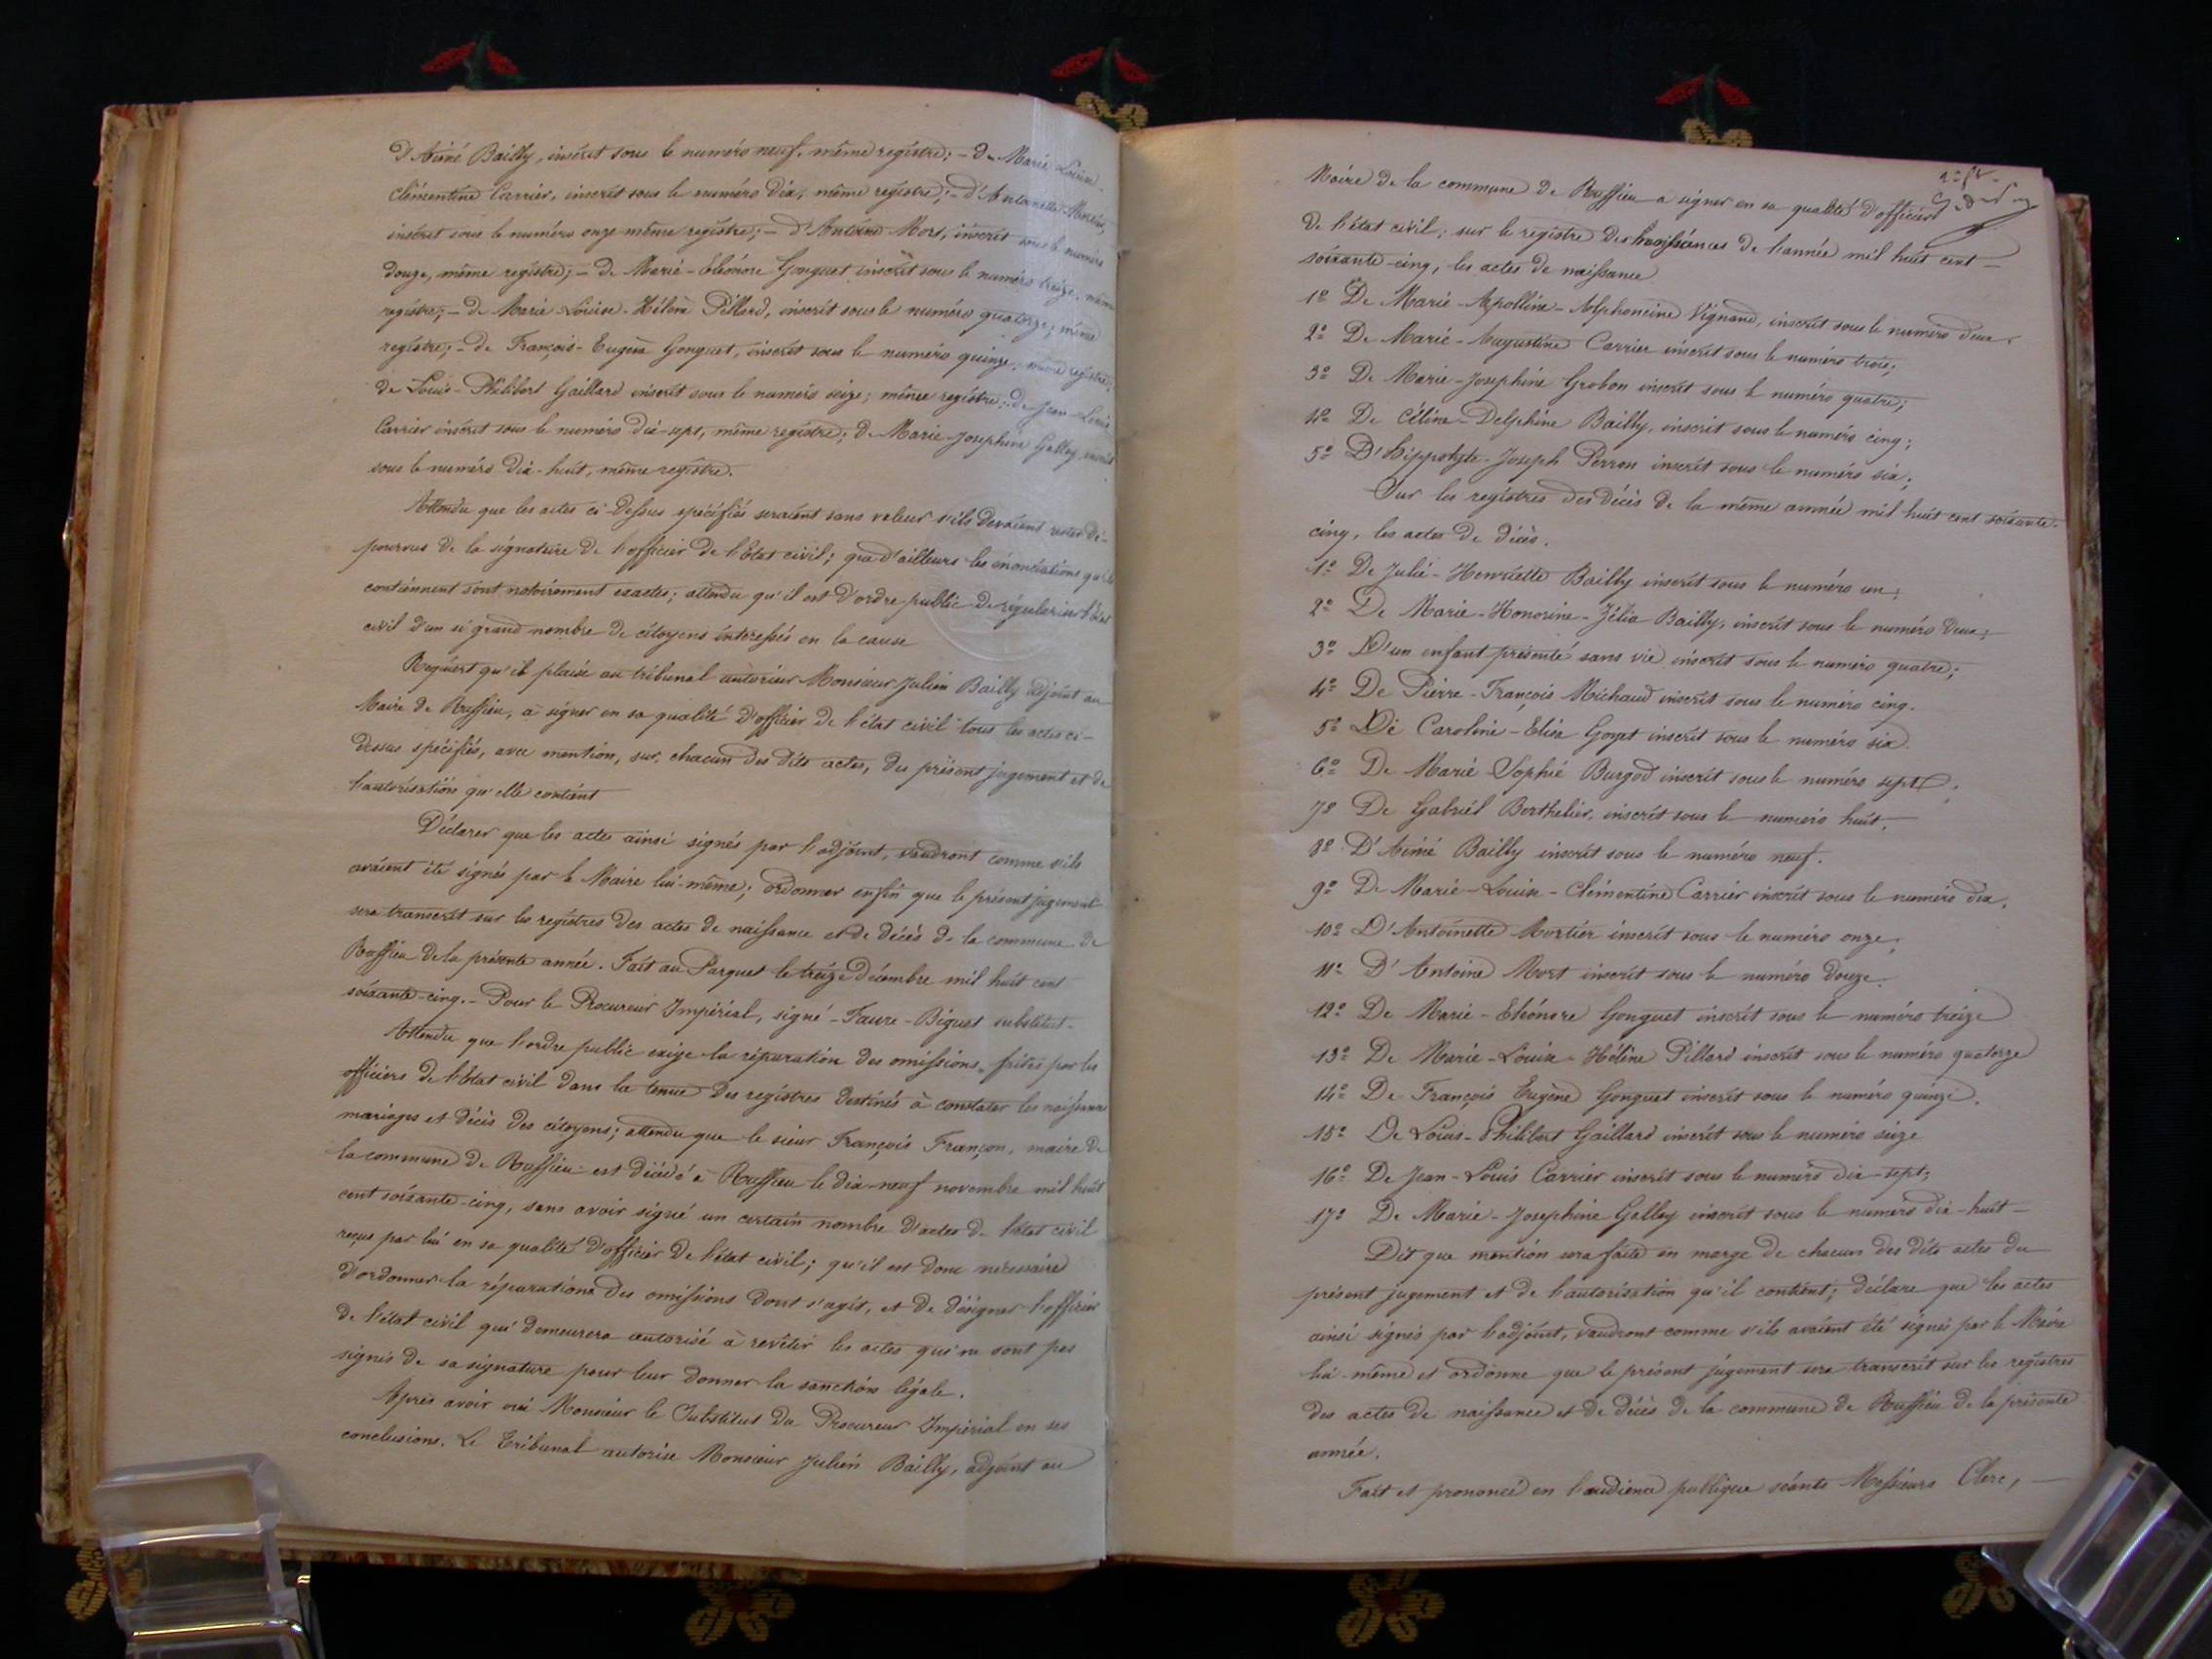 D'Aimé Bailly, inscrit sous le numéro neuf, même registre; – de Marie Louise-
Clémentine Carrier, inscrit sous le numéro dix, même registre; – d'Antoinette Mortier,
inscrit sous le numéro onze même registre; – d'Antoine Mort, inscrit sous le numéro
douze, même registre; – de Marie-Eléonore Gonguet inscrit sous le numéro treize, même
registre; – de Marie-Louise-Hélène Pillard, inscrit sous le numéro quatorze; même
registre; – de François-Eugène Gonguet, inscrit sous le numéro quinze, même registre;
de Louis-Philibert Gaillard inscrit sous le numéro seize; même registre; de Jean-Louis
Carrier inscrit sous le numéro dix-sept, même registre; de Marie-Josephine Galley, inscrit
sous le numéro dix-huit, même registre.
Attendu que les actes ci-dessus spécifiés seraient sans valeur s'ils devaient rester dé-
pourvus de la signature de l'officier de l'Etat civil; que d'ailleurs les énonciations qu'ils
contiennent sont notoirement exactes; attendu qu'il est d'ordre public de régulariser l'état
civil d'un si grand nombre de citoyens intéressés en la cause
Requiert qu'il plaise au tribunal autoriser Monsieur Julien Bailly adjoint au
Maire de Ruffieu, à signer en sa qualité d'officier de l'état civil tous les actes ci-
dessus spécifiés, avec mention, sur chacun des dits actes, du présent jugement et de
l'autorisation qu'elle contient
Déclarer que les actes ainsi signés par l'adjoint, vaudront comme s'ils
avaient été signés par le Maire lui-même; ordonner enfin que le présent jugement
sera transcrit sur les registres des actes de naissance et de décès de la commune de
Ruffieu de la présente année. Fait au Parquet le treize décembre mil huit cent
soixante-cinq. – Pour le Procureur Impérial, signé – Faure-Biguet substitut –
Attendu que l'ordre public exige la réparation des omissions faites par les
officiers de l'Etat civil dans la tenue des registres destinés à constater les naissances
mariages et décès des citoyens; attendu que le sieur François Françon, maire de
la commune de Ruffieu est décédé à Ruffieu le dix-neuf novembre mil huit
cent soixante-cinq, sans avoir signé un certain nombre d'actes de l'état civil
reçus par lui en sa qualité d'officier de l'état civil; qu'il est donc nécessaire
d'ordonner la réparation des omissions dont s'agit, et de désigner l'officier
de l'état civil qui demeurera autorisé à revêtir les actes qui ne sont pas
signés de sa signature pour leur donner la sanction légale.
Après avoir ouï Monsieur le Substitut du Procureur Impérial en ses
conclusions. Le Tribunal autorise Monsieur Julien Bailly, adjoint au
Maire de la commune de Ruffieu à signer en sa qualité d'officier
de l'état civil; sur le registre des naissances de l'année mil huit cent –
soixante-cinq, les actes de naissance
1º De Marie-Apolline-Alphoncine Vignand, inscrit sous le numéro deux.
2º De Marie-Augustine Carrier inscrit sous le numéro trois;
3º De Marie-Joséphine Grobon inscrit sous le numéro quatre;
4º De Céline-Delphine Bailly, inscrit sous le numéro cinq;
5º D'Hippolyte-Joseph Perron inscrit sous le numéro six;
Sur les registres des décès de la même année mil huit cent soixante-
cinq, les actes de décès.
1º De Julie-Henriette Bailly inscrit sous le numéro un;
2º De Marie-Honorine-Zélia Bailly, inscrit sous le numéro deux;
3º D'un enfant présenté sans vie inscrit sous le numéro quatre;
4º De Pierre-François Michaud inscrit sous le numéro cinq.
5º De Caroline-Elisa Goyet inscrit sous le numéro six.
6º De Marie Sophie Burgod inscrit sous le numéro sept;
7º De Gabriel Berthelier, inscrit sous le numéro huit.
8º D'Aimé Bailly inscrit sous le numéro neuf.
9º De Marie-Louise-Clémentine Carrier inscrit sous le numéro dix.
10º D'Antoinette Mortier inscrit sous le numéro onze;
11º D'Antoine Mort inscrit sous le numéro douze.
12º De Marie-Eléonore Gonguet inscrit sous le numéro treize
13º De Marie-Louise-Hélène Pillard inscrit sous le numéro quatorze
14º De François Eugène Gonguet inscrit sous le numéro quinze.
15º De Louis-Philibert Gaillard inscrit sous le numéro seize
16º De Jean-Louis Carrier inscrit sous le numéro dix-sept;
17º De Marie-Josephine Galley inscrit sous le numéro dix-huit –
Dit que mention sera faite en marge de chacun des dits actes du
présent jugement et de l'autorisation qu'il contient; déclare que les actes
ainsi signés par l'adjoint, vaudront comme s'ils avaient été signés par le Maire
lui-même et ordonne que le présent jugement sera transcrit sur les registres
des actes de naissance et de décès de la commune de Ruffieu de la présente
année.
Fait et prononcé en l'audience publique séants Messieurs Clerc, –